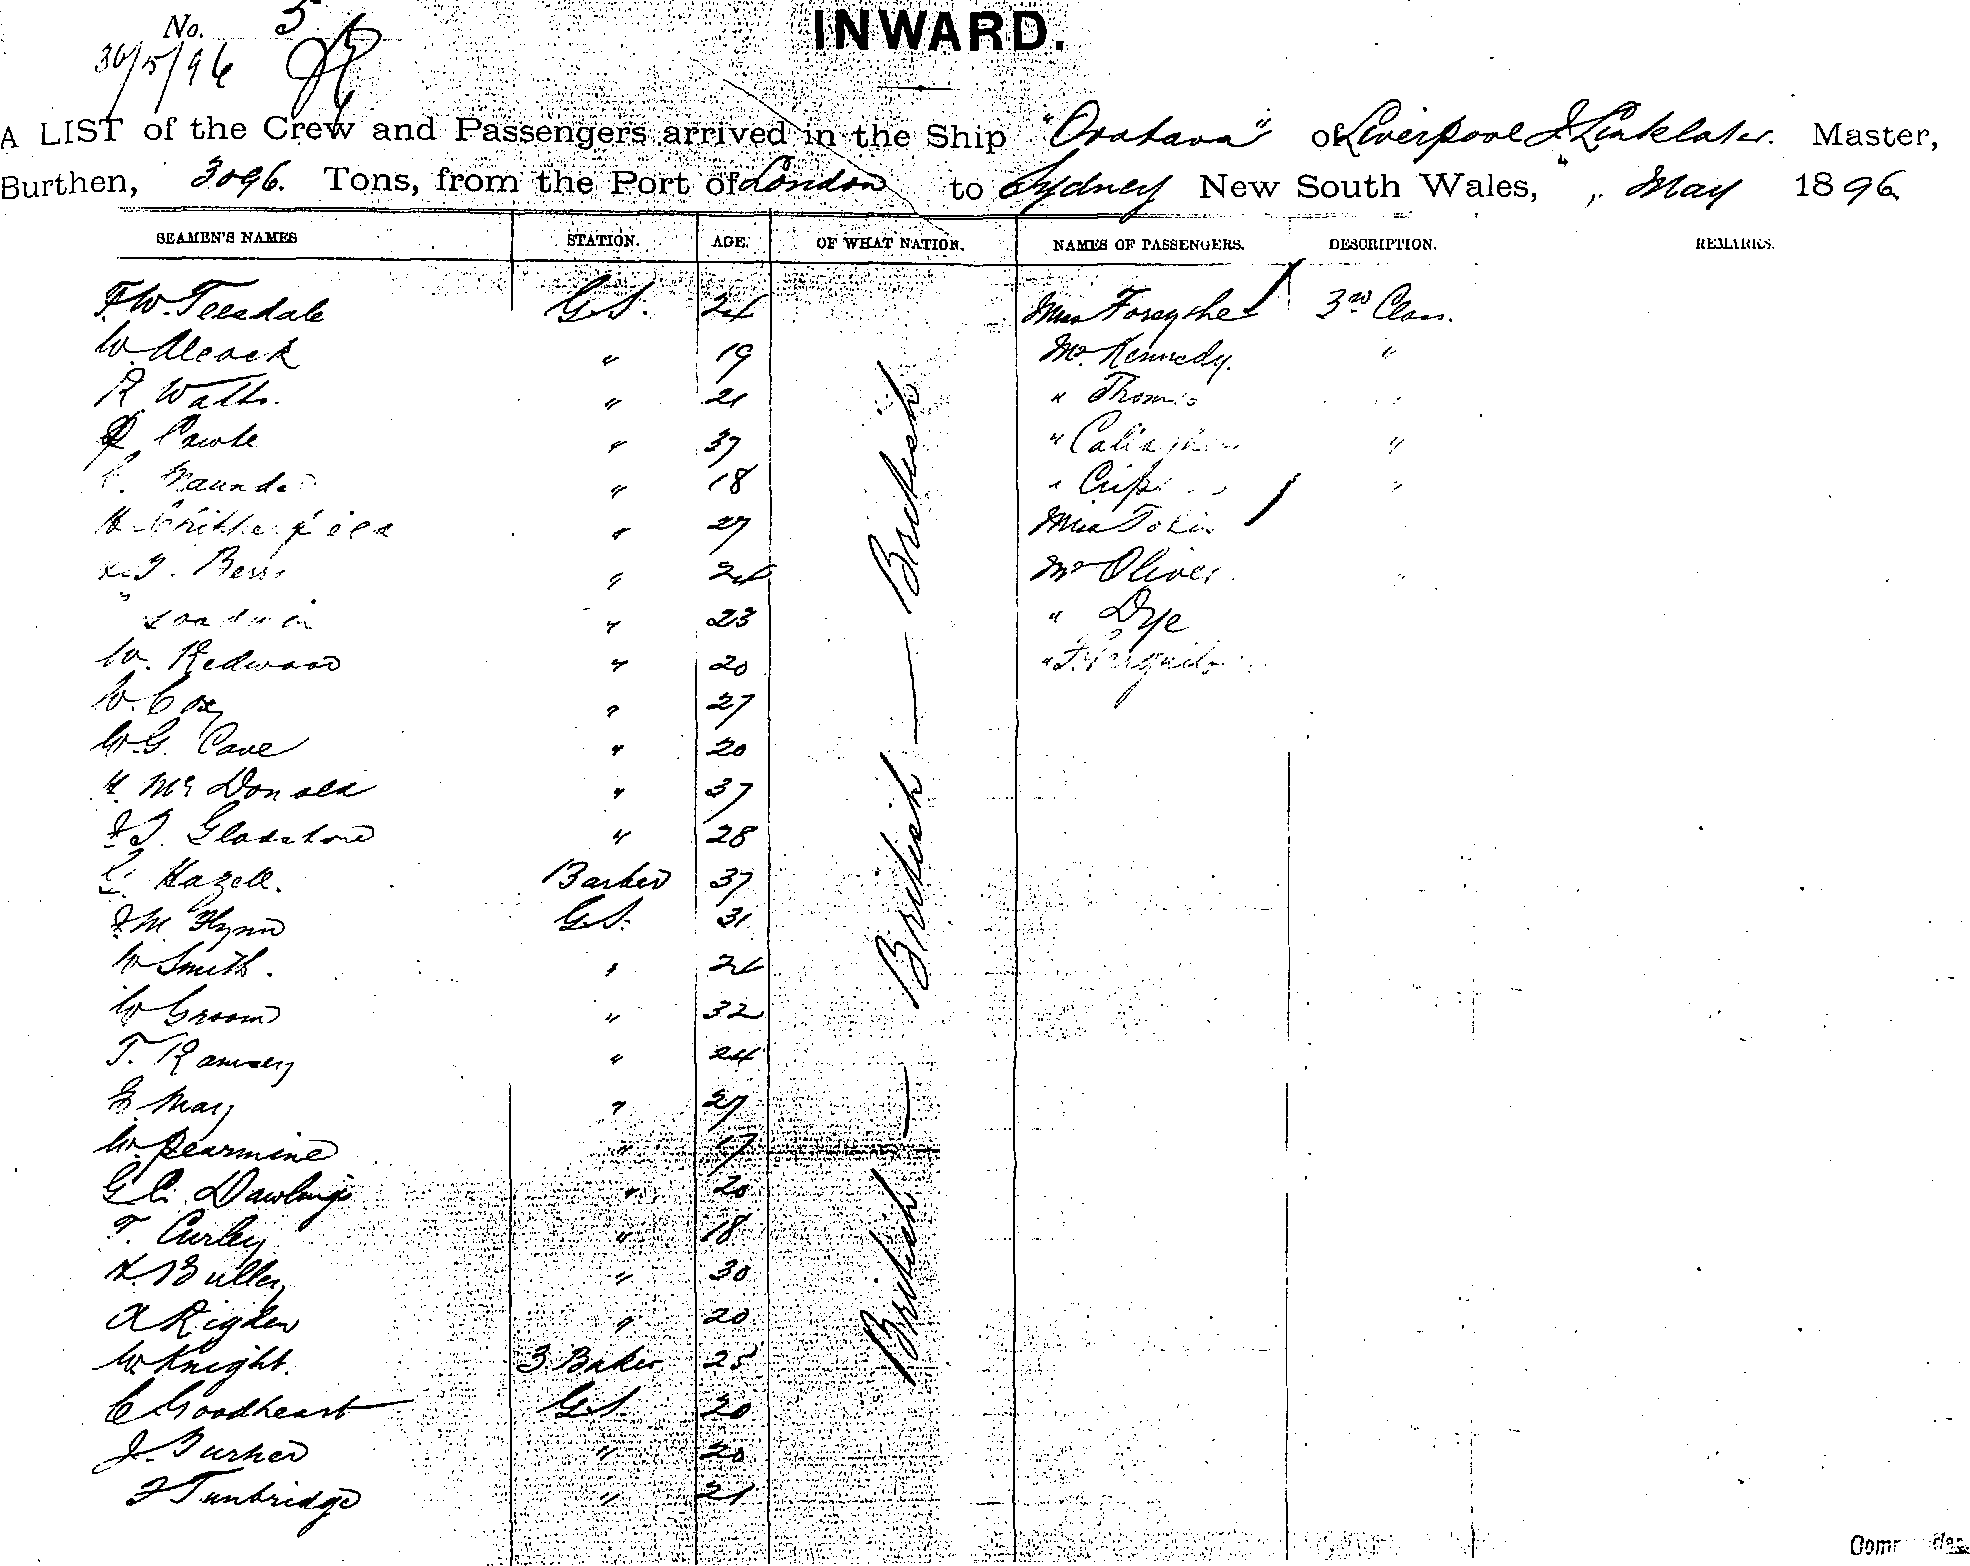 No. 5
30/5/96
INWARD.
A LIST of the Crew and Passengers arrived in the Ship "Orotava" of Liverpool J. Linklater. Master,
Burthen, 3096. Tons, from the Port of London to Sydney New South Wales, " , May 1896
SEAMEN'S NAMES STATION. AGE. OF WHAT NATION. NAMES OF PASSENGERS. DESCRIPTION. REMARKS.
F. W. Teesdale G.S. 24 Miss Forsythe 3rd Class.
W. Alcock " 19 Mr. Kennedy. "
R Watts. " 21 " Thomas
" 37 " "
18 " "
" 27 Miss Tobin
" 24 Mr Oliver "
" 23 " Dye
W. Redwood " 20 "
W. Cox " 27
W. G. Cave " 20
McDonald " 37
J. Gladstone " 28
Hazell. Barker 37
J. M. Flynn G.S. 31
W Smith. " 24
W Groom " 32
T. Ramsey " 24
G. May " 27
W. Pearmine " 17
G. C. Dawlings " 20
T. Curley " 18
Bulley " 30
A Rigden " 20
W Knight. 3 Baker 25
C Goodheart G.S. 20
J. Turner " 20
J Tunbridge " 21
British — British — British